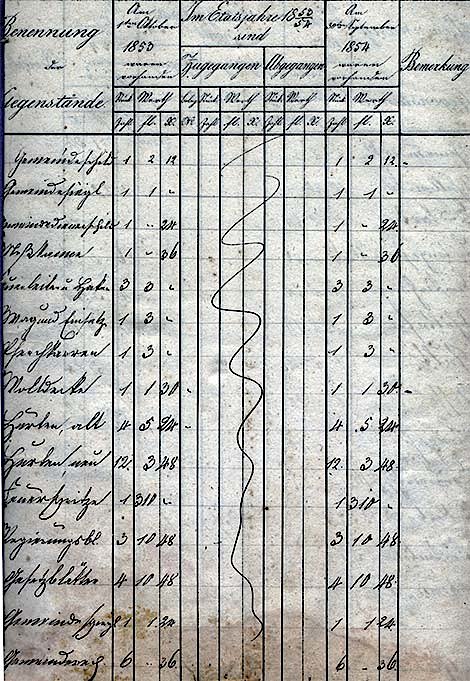 Benennung der Gegenstände
Am 1ten Oktober 1853 waren vorhanden
Im Etatsjahre 1853/54 sind
Zugegangen Abgegangen
Am 30. September 1854 waren vorhanden
Bemerkung
Stück Werth Stück Werth Stück Werth Stück Werth
Zahl fl. X. Zahl fl. X. Zahl fl. X. Zahl fl. X.
1 2 12 1 2 12
Gemeindesiegl 1 1 " 1 1 "
1 " 24 1 " 24
1 " 36 1 " 36
3 3 " 3 3 "
1 3 " 1 3 "
Pferchkarren 1 3 " 1 3 "
1 1 30 1 1 30
Hürten, alt 4 5 24 4 5 24
Hürten neu 12 3 48 12 3 48
Feuerspritze 1 310 " 1 310 "
Regierungsbl. 3 10 48 3 10 48
Gesetzblätter 4 10 48 4 10 48
Gemeinde 1 1 24 1 1 24
6 " 36 6 " 36